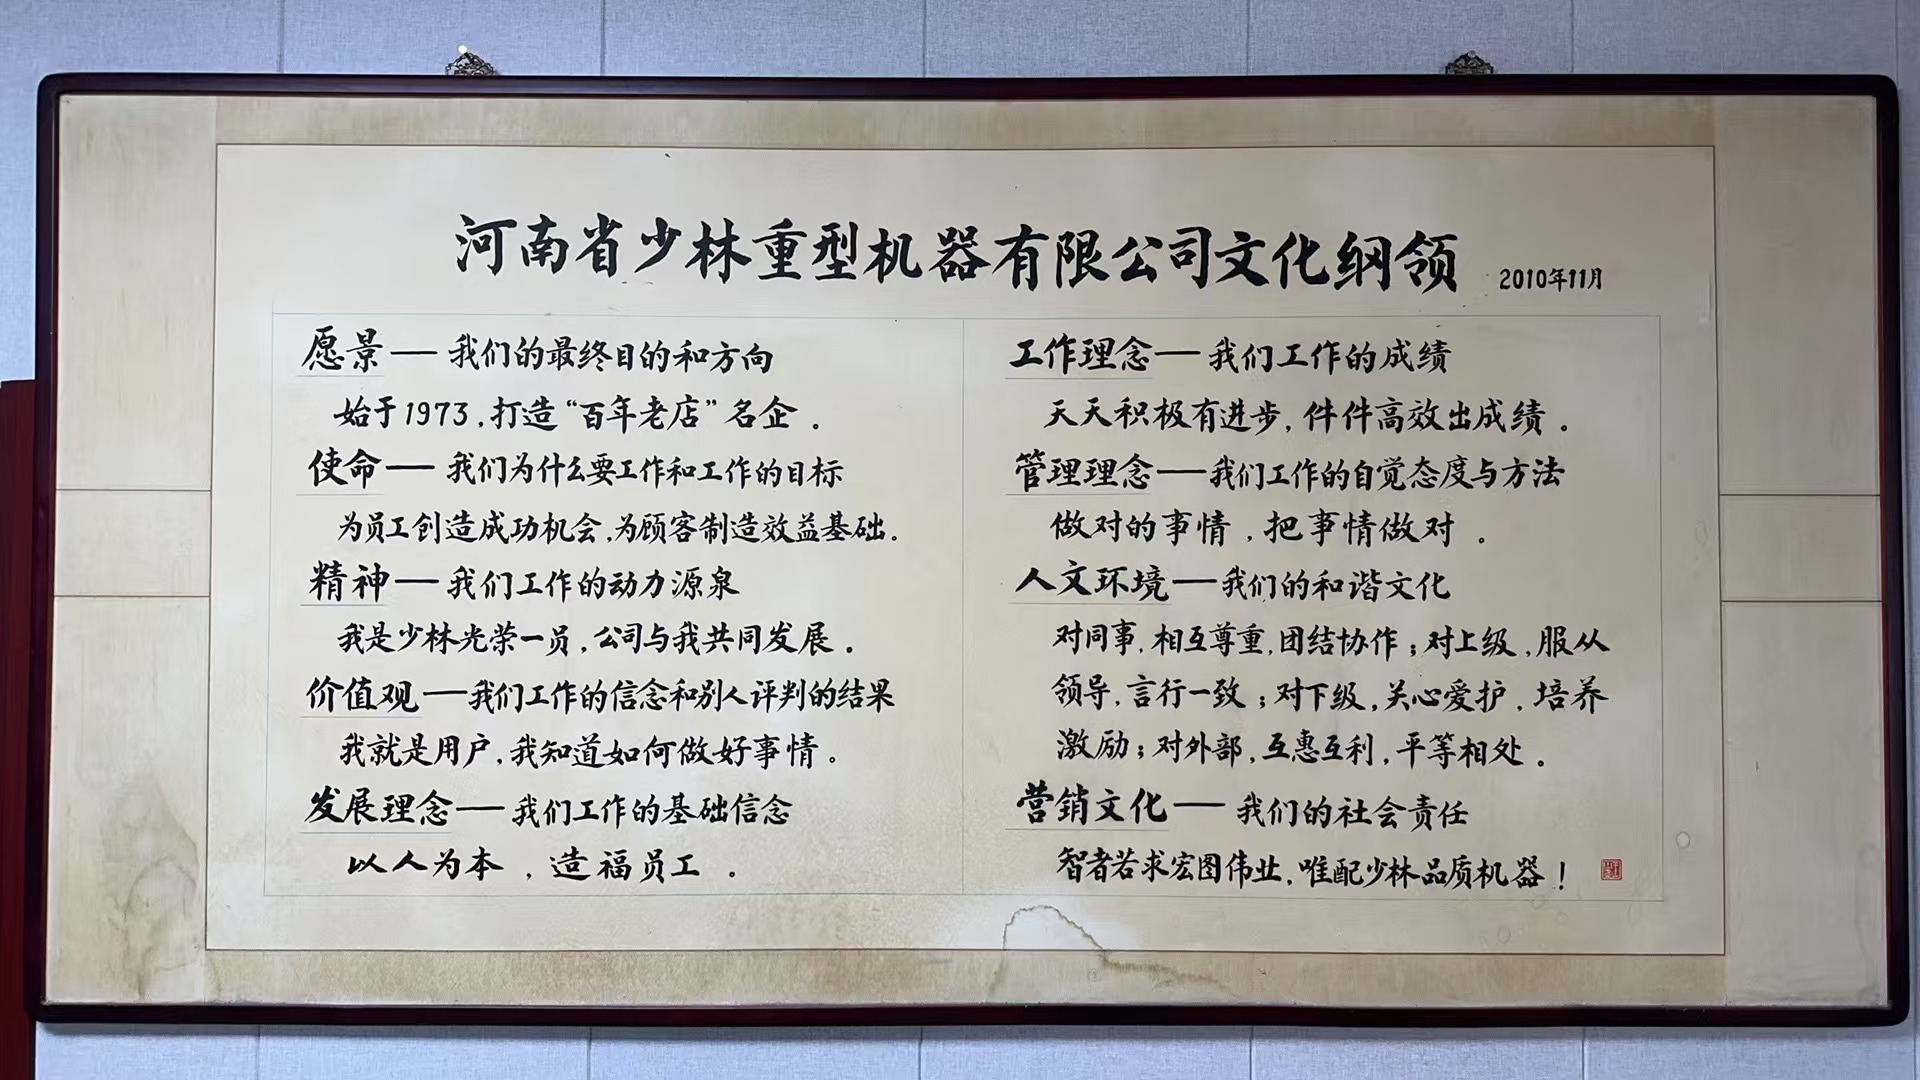 河南省少林重型机器有限公司文化纲领 2010年11月
愿景——我们的最终目的和方向
始于1973,打造“百年老店”名企。
使命——我们为什么要工作和工作的目标
为员工创造成功机会,为顾客制造效益基础.
精神——我们工作的动力源泉
我是少林光荣一员,公司与我共同发展。
价值观——我们工作的信念和别人评判的结果
我就是用户,我知道如何做好事情。
发展理念——我们工作的基础信念
以人为本,造福员工。
工作理念——我们工作的成绩
天天积极有进步,件件高效出成绩。
管理理念——我们工作的自觉态度与方法
做对的事情,把事情做对。
人文环境——我们的和谐文化
对同事,相互尊重,团结协作;对上级,服从
领导,言行一致;对下级,关心爱护,培养
激励;对外部,互惠互利,平等相处。
营销文化——我们的社会责任
智者若求宏图伟业,唯配少林品质机器!